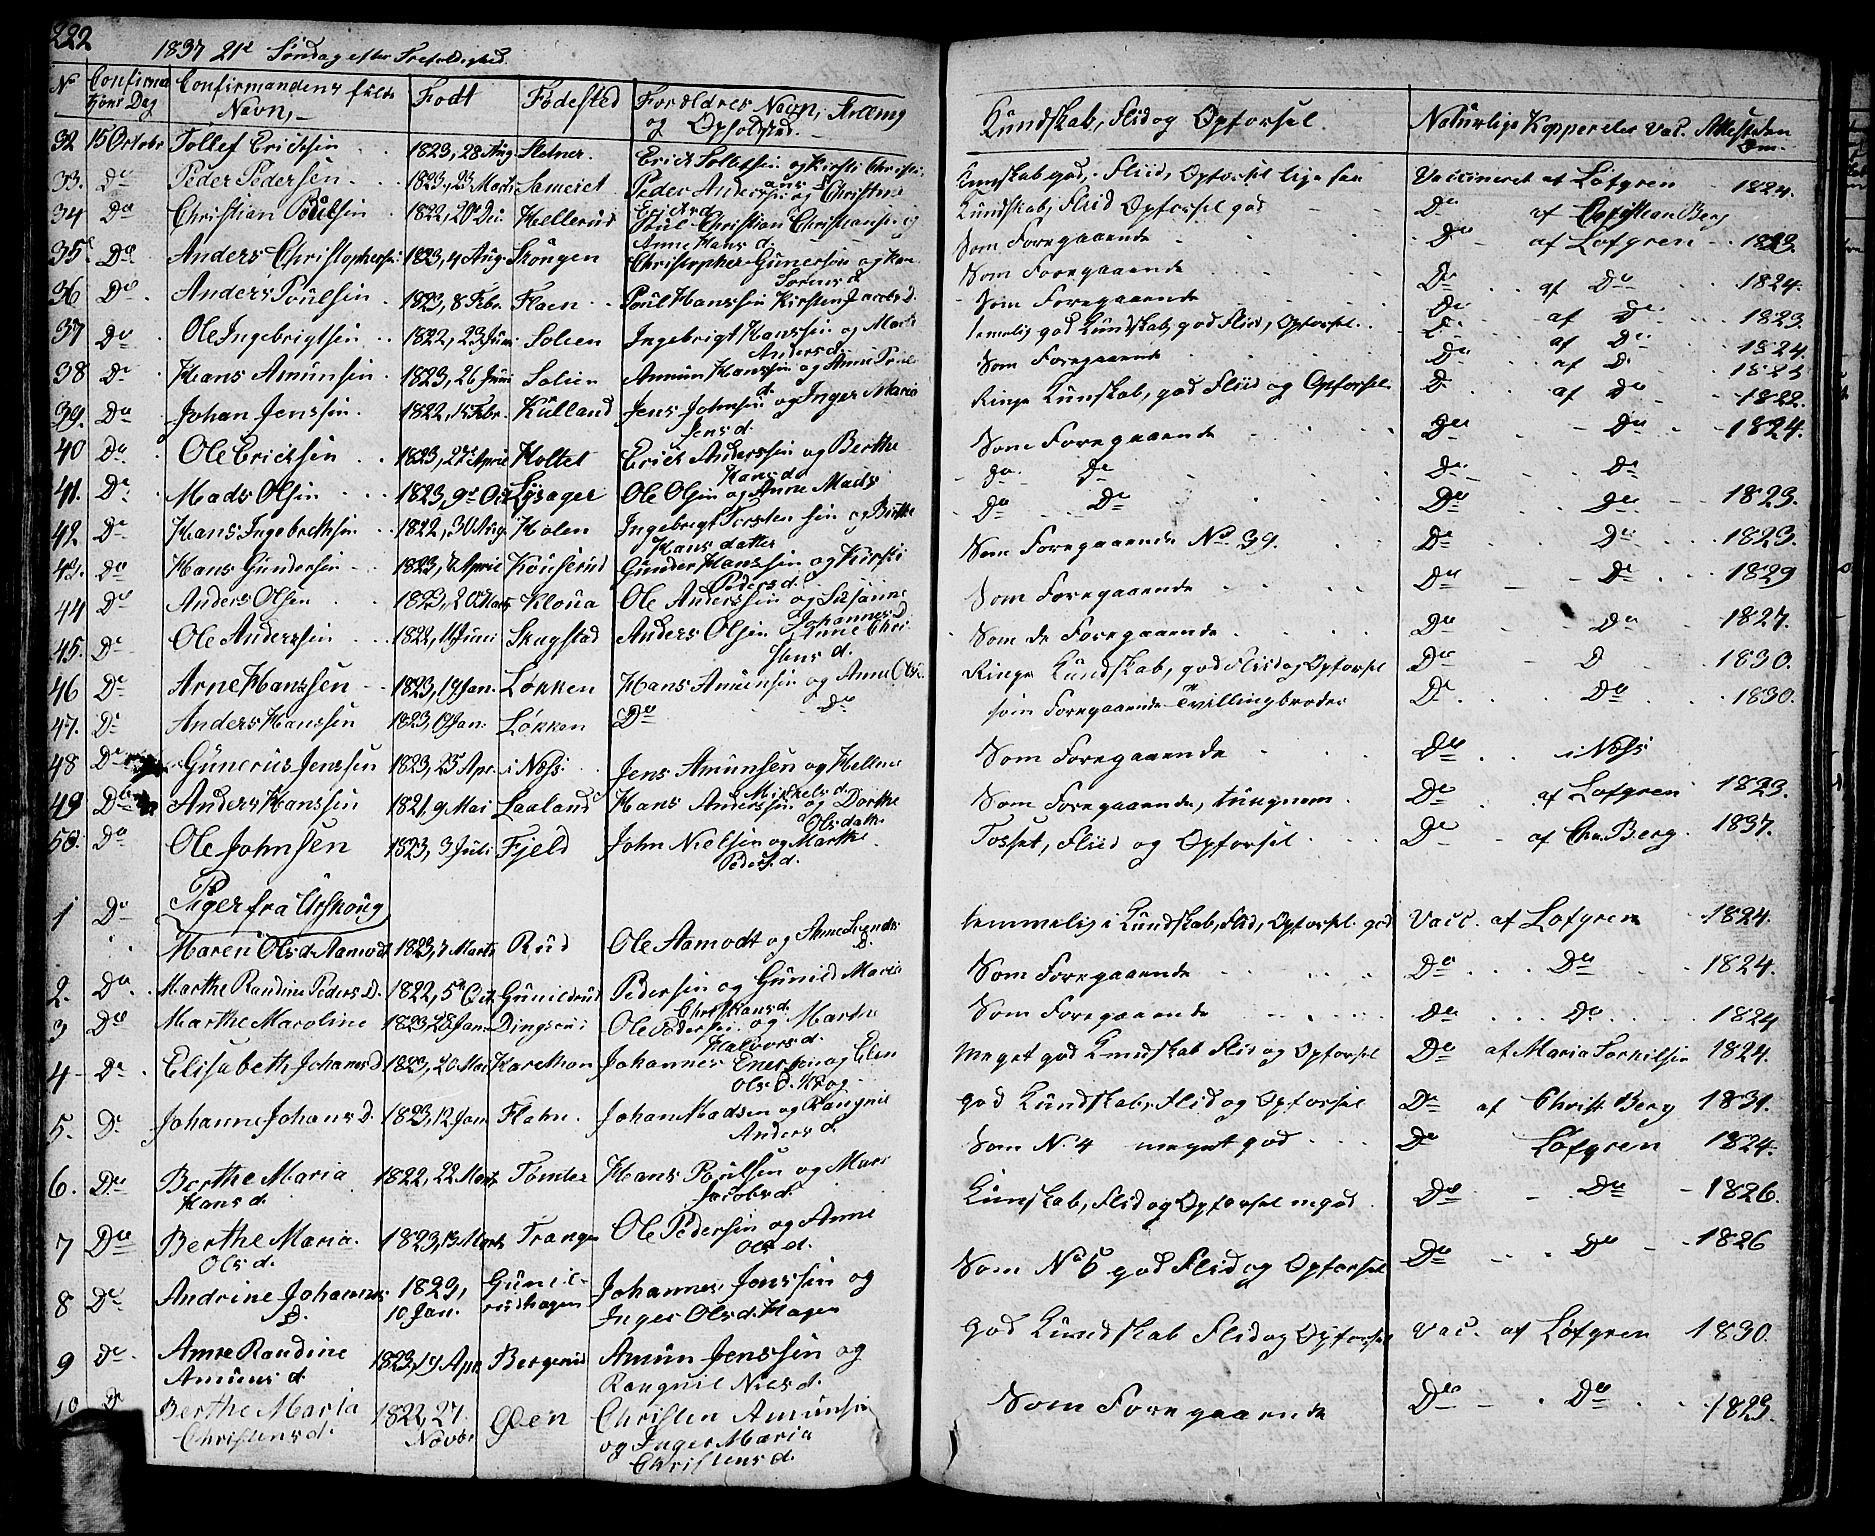 222
1837 21de Søndag efter Trefoldighed
No Confirmations Dag Confirmandens fulde Navn, Født Fødested Forældres Navn, Stilling og Opholdsted. Kundskab, Flid og Opførsel. Naturlige Kopper eller Vac. Attestens Dm.
32 15 Octobr Tollef Ericksen 1823, 28 Aug Slotner. Erick Tollefsen og Kirsti Christi- Kundskab god, Fliid, Opførsel ligesaa Vaccineret af Løfgren 1824.
33. Do Peder Pedersen 1823, 23 Marts Sameiet Peder Andersen og Christine Ericksd. Kundskab, Fliid Opførsel god Do af Christian Berg
34 Do Christian Poulsen 1822, 20 De. Hellerud Poul Christian Christiansen og Anne Hans d. Som Foregaaende Do af Løfgren 1823.
35 Do Anders Christophersen 1823, 4 Aug. Skougen Christopher Gunersen og Kari Sørens d. Som Foregaaende Do af Do 1824.
36 Do Anders Poulsen 1823, 8 Febr. Flaen Poul Hanssen Kirsten Jacobs D. Som Foregaaende Do af Do 1823.
37 Do Ole Ingebrigtsen 1822, 23 Juni Solien Ingebrigt Hanssen og Marte Anders d. temelig god Kundskab, god Fliid, Opførsel. D. af Do 1824.
38 Do Hans Amunsen 1823, 26 Juni Solien Amun Hanssen og Anne Poul d. Som Foregaaende Do af D
39. Do Johan Jenssen 1822, 15 Febr. Kulland Jens Johnsen og Inger Maria Jens d. Ringe Kunskab, god Fliid og Opførsel D af Do 1822.
40 Do Ole Ericksen 1823, 27 April Holtet Erick Anderssen og Berthe Hans d. Som Foregaaende Do Do 1824.
41. Do Mads Olsen 1823, 9de Oct Lysager Ole Olsen og Anne Mads Do Do Do Do
42 Do Hans Ingebrethsen 1822, 30 Aug. Holen Ingebrigt Torstensen og Birthe Hans datter Do Do Do Do 1823.
43. Do Hans Gundersen 1823, April Kouserud Gunder Hanssen og Kirsti Peders d. Som Foregaaende No 39. Do Do 1823.
44 Do Anders Olsen 1823, 20 Marts Kloua Ole Anderssen og Susanne Johannes D. Som Foregaaende Do Do 1829
45. Do Ole Anderssen 1822, 14 Juni Skugstad Anders Olsen Anne Chri- Jens d. Som de Foregaaende Do Do 1827.
46 Do Arne Hanssen 1823, 19 Jan. Løkken Hans Amunsen og Anne Ols Ringe Kundskab, god Flid og Opførsel Do D 1830.
47. Do Anders Hanssen 1823, 19 Jan. Løkken Do Do som Foregaaende Tvillingbroder Do Do 1830.
48 Do Gunerius Jenssen 1823, 25 Apr. i Næss. Jens Amunsen og Hellene Mikkels d. Som Foregaaende Do i Næss
49 Do Anders Hanssen 1821, 9 Mai Laaland Hans Anderssen og Dorthe Olsdatte Som Foregaaende, tungnem Do af Løfgren 1823.
50. Do Ole Johnsen 1823, 3 Juli Fjeld John Nielsen og Marthe Peders d. Tosset, Fliid og Opførsel Do af Chr. Berg. 1837.
Piger fra Urskoug
1 Do Maren Olsd. Aamodt 1823, 7 Marts Rud Ole Aamodt og Anne Svends D. temmelig i Kundskab, Flid, Opførsel god Vacc. af Løfgren 1824.
2. Do Marthe Randine Peders D. 1822, 5 Oct Gunildrud Pedersen og Gunild Marie Christians d. Som Foregaaende Do Do 1824.
3 Do Marthe Maroline 1823, 28 Jan. Dingsrud Ole Pedersen og Marthe Halvors d. Som Foregaaende Do Do 1824
4 Do Elisabeth Johanns D 1823, 20 Mai Karethon Johannes Enersen og Elen Ols D. Krog Meget god Kundskab Flid og Opførsel Do af Maria Torkilsen 1824.
5. Do Johanne Johans D. 1823, 12 Jan Flahn. Johan Madsen og Rangnil Anders d. god Kundskab, Flid og Opførsel Do af Christ. Berg 1831.
6. Do Berthe Maria Hans d. 1822, 22 Marts Tømter Hans Poulsen og Mari Jacobs d. Som N. 4 meget god Do Løfgren 1824.
7 Do Berthe Maria Ols d. 1823, 13 Marts Trangen Ole Pedersen og Anne Ols d. Kunskab, Flid og Opførsel mgod. Do Do 1826.
8 Do Andrine Johannes D. 1823, 10 Jan. Gunilrudhagen Johannes Jonssen og Inger Olsd. Hagen Som No 6 god Flid og Opførsel Do Do 1826
9 Do Anne Randine Amuns d. 1823, 19 Apr. Bergerud Amun Jenssen og Rangnil Niels d. god Kundskab Flid og Opførsel Vac. af Løfgren 1830.
10 Do Berthe Maria Christens d. 1822, 27. Novbr. Øen Christen Amunsen og Inger Maria Christens d. Som Foregaaende Do Do 1823.